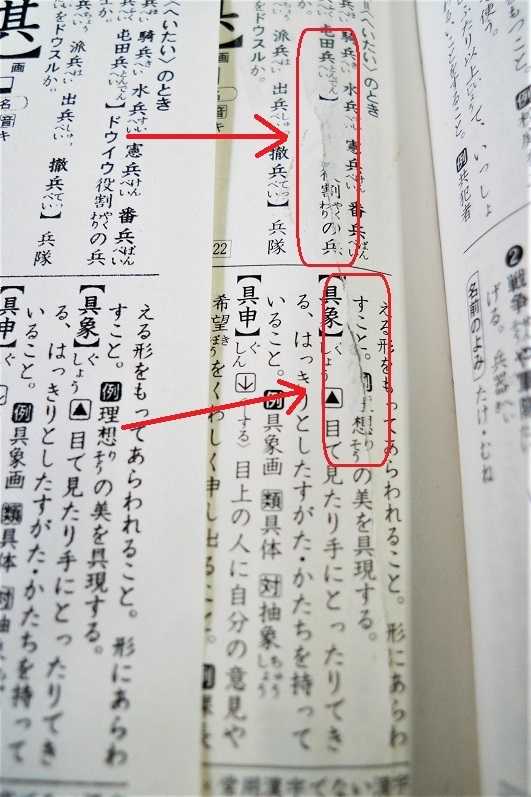 もつこと。
ふたり以上で、いっしょ
例 共犯者
❷戦争
げる。兵器
名前のよみ たけ・むね
〈へいたい〉のとき
騎兵 水兵 憲兵 番兵
屯田兵】 役割の兵
派兵 出兵 撤兵】兵隊
をドウスルか。
22
える形をもってあらわれること。形にあらわ
すこと。例 想の美を具現する。
【具象】ぐしょう ▲ 目で見たり手にとったりでき
る、はっきりとしたすがた・かたちを持って
いること。例 具象画 類 具体 対 抽象
【具申】ぐしん ↓〈する〉目上の人に自分の意見や
希望をくわしく申し出ること。
常用漢字でない漢字
〈へいたい〉のとき
騎兵 水兵 憲兵 番兵
屯田兵】ドウイウ役割の兵
派兵 出兵 撤兵】兵隊
をドウスルか。
える形をもってあらわれること。形にあらわ
すこと。例 理想の美を具現する。
【具象】ぐしょう ▲ 目で見たり手にとったりでき
る、はっきりとしたすがた・かたちを持って
いること。例 具象画 類 具体 対 抽
【具申】ぐ